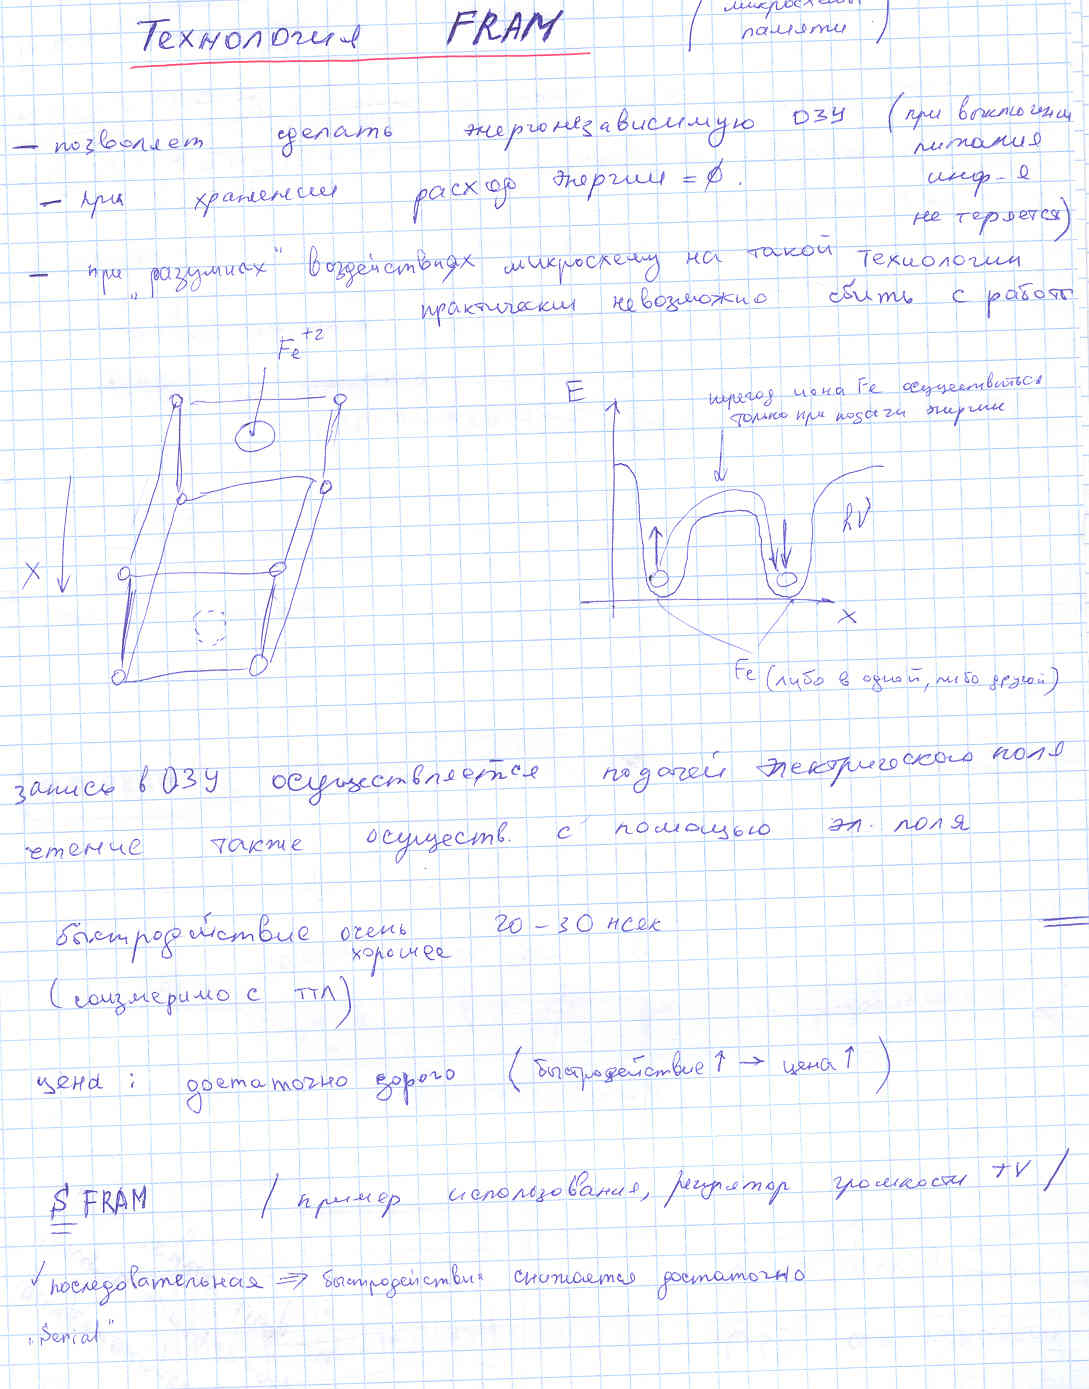 Технология FRAM (микросхемы
памяти)
— позволяет сделать энергонезависимую ОЗУ (при выключении
питания
инф-я
не теряется)
— при хранении расход энергии = 0.
— при „разумных" воздействиях микросхему на такой технологии
практически невозможно сбить с работы
Fe+2
X
E
переход иона Fe осуществиться
только при подачи энергии
hν
X
Fe (либо в одной, либо другой)
запись в ОЗУ осуществляется подачей электрического поля
чтение также осуществ. с помощью эл. поля
быстродействие очень 20 – 30 нсек
хорошее
(соизмеримо с ТТЛ)
цена : достаточно дорого (быстродействие ↑ → цена ↑)
S FRAM / пример использования, регулятор громкости TV /
✓ последовательная ⇒ быстродействия снижается достаточно
„Serial"